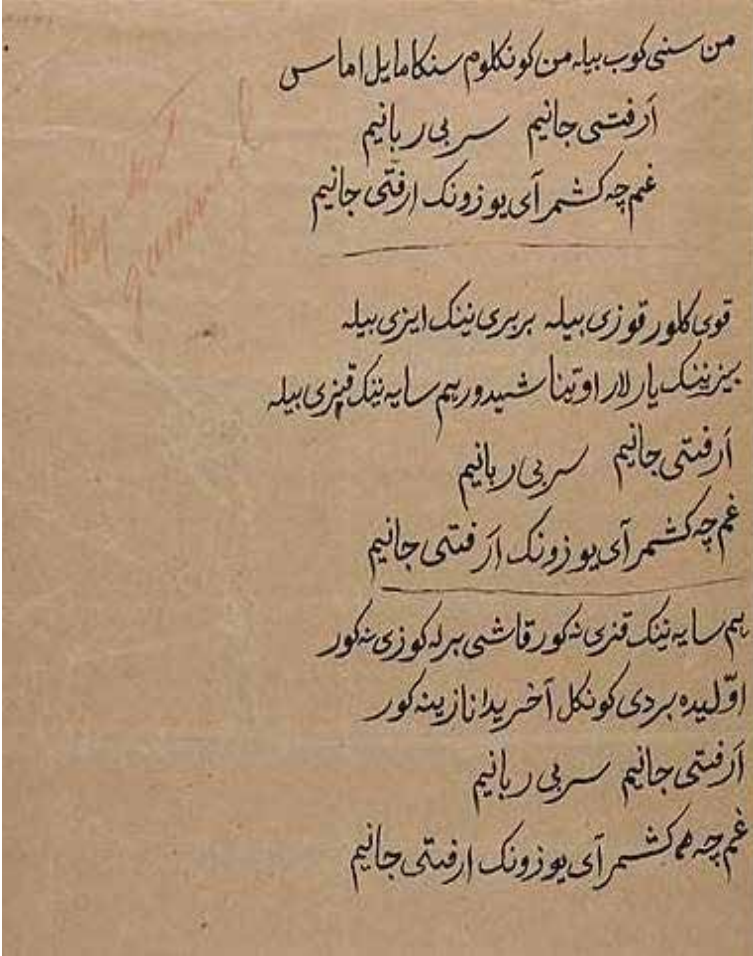 من سنی کوب بیله من کونکلوم سنکا مایل اماس
اَرفتی جانیم سربی ربانیم
غم چه کشمر آی یوزونک ارفتی جانیم
قوی کلور قوزی بیله بربری نینک ایزی بیله
بیزنینک یارلار اوتیناشیدور هم سایه نینک قیزی بیله
اَرفتی جانیم سربی ربانیم
غم چه کشمر آی یوزونک اَرفتی جانیم
هم سایه نینک قنری نه کور قاشی برله کوزی نه کور
اوّلیده بردی کونکل آخریدا نازینه کور
اَرفتی جانیم سربی ربانیم
غم چه کشمر آی یوزونک ارفتی جانیم